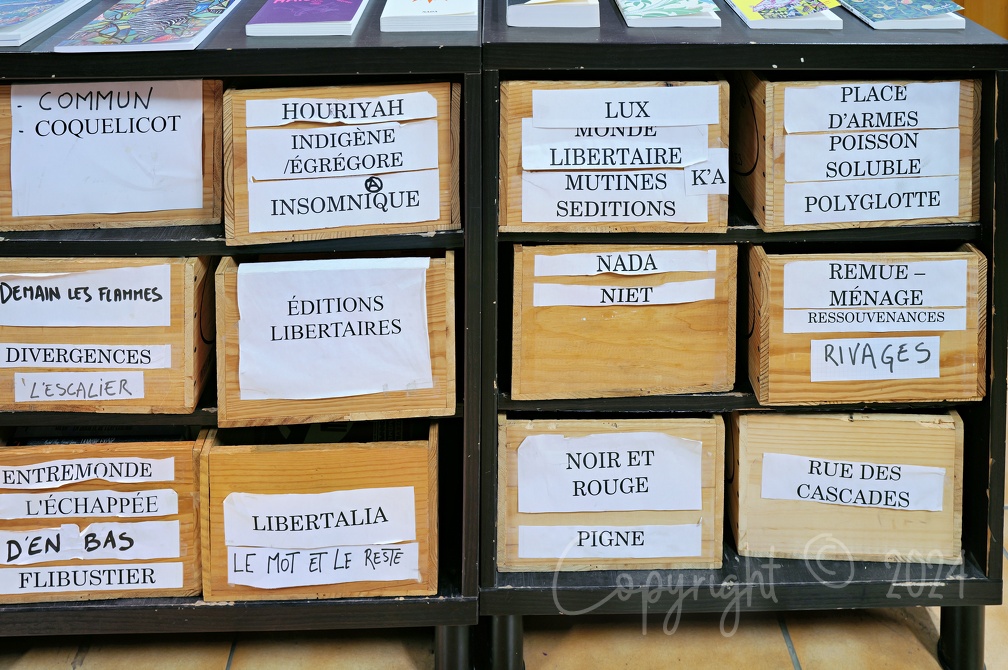 - COMMUN
- COQUELICOT
HOURIYAH
INDIGÈNE
/ÉGRÉGORE
INSOMNIQUE
LUX
MONDE
LIBERTAIRE
MUTINES
SEDITIONS
K'A
PLACE
D'ARMES
POISSON
SOLUBLE
POLYGLOTTE
DEMAIN LES FLAMMES
DIVERGENCES
'L'ESCALIER
ÉDITIONS
LIBERTAIRES
NADA
NIET
REMUE –
MÉNAGE
RESSOUVENANCES
RIVAGES
ENTREMONDE
L'ÉCHAPPÉE
D'EN BAS
FLIBUSTIER
LIBERTALIA
LE MOT ET LE RESTE
NOIR ET
ROUGE
PIGNE
RUE DES
CASCADES
Copyright © 2024